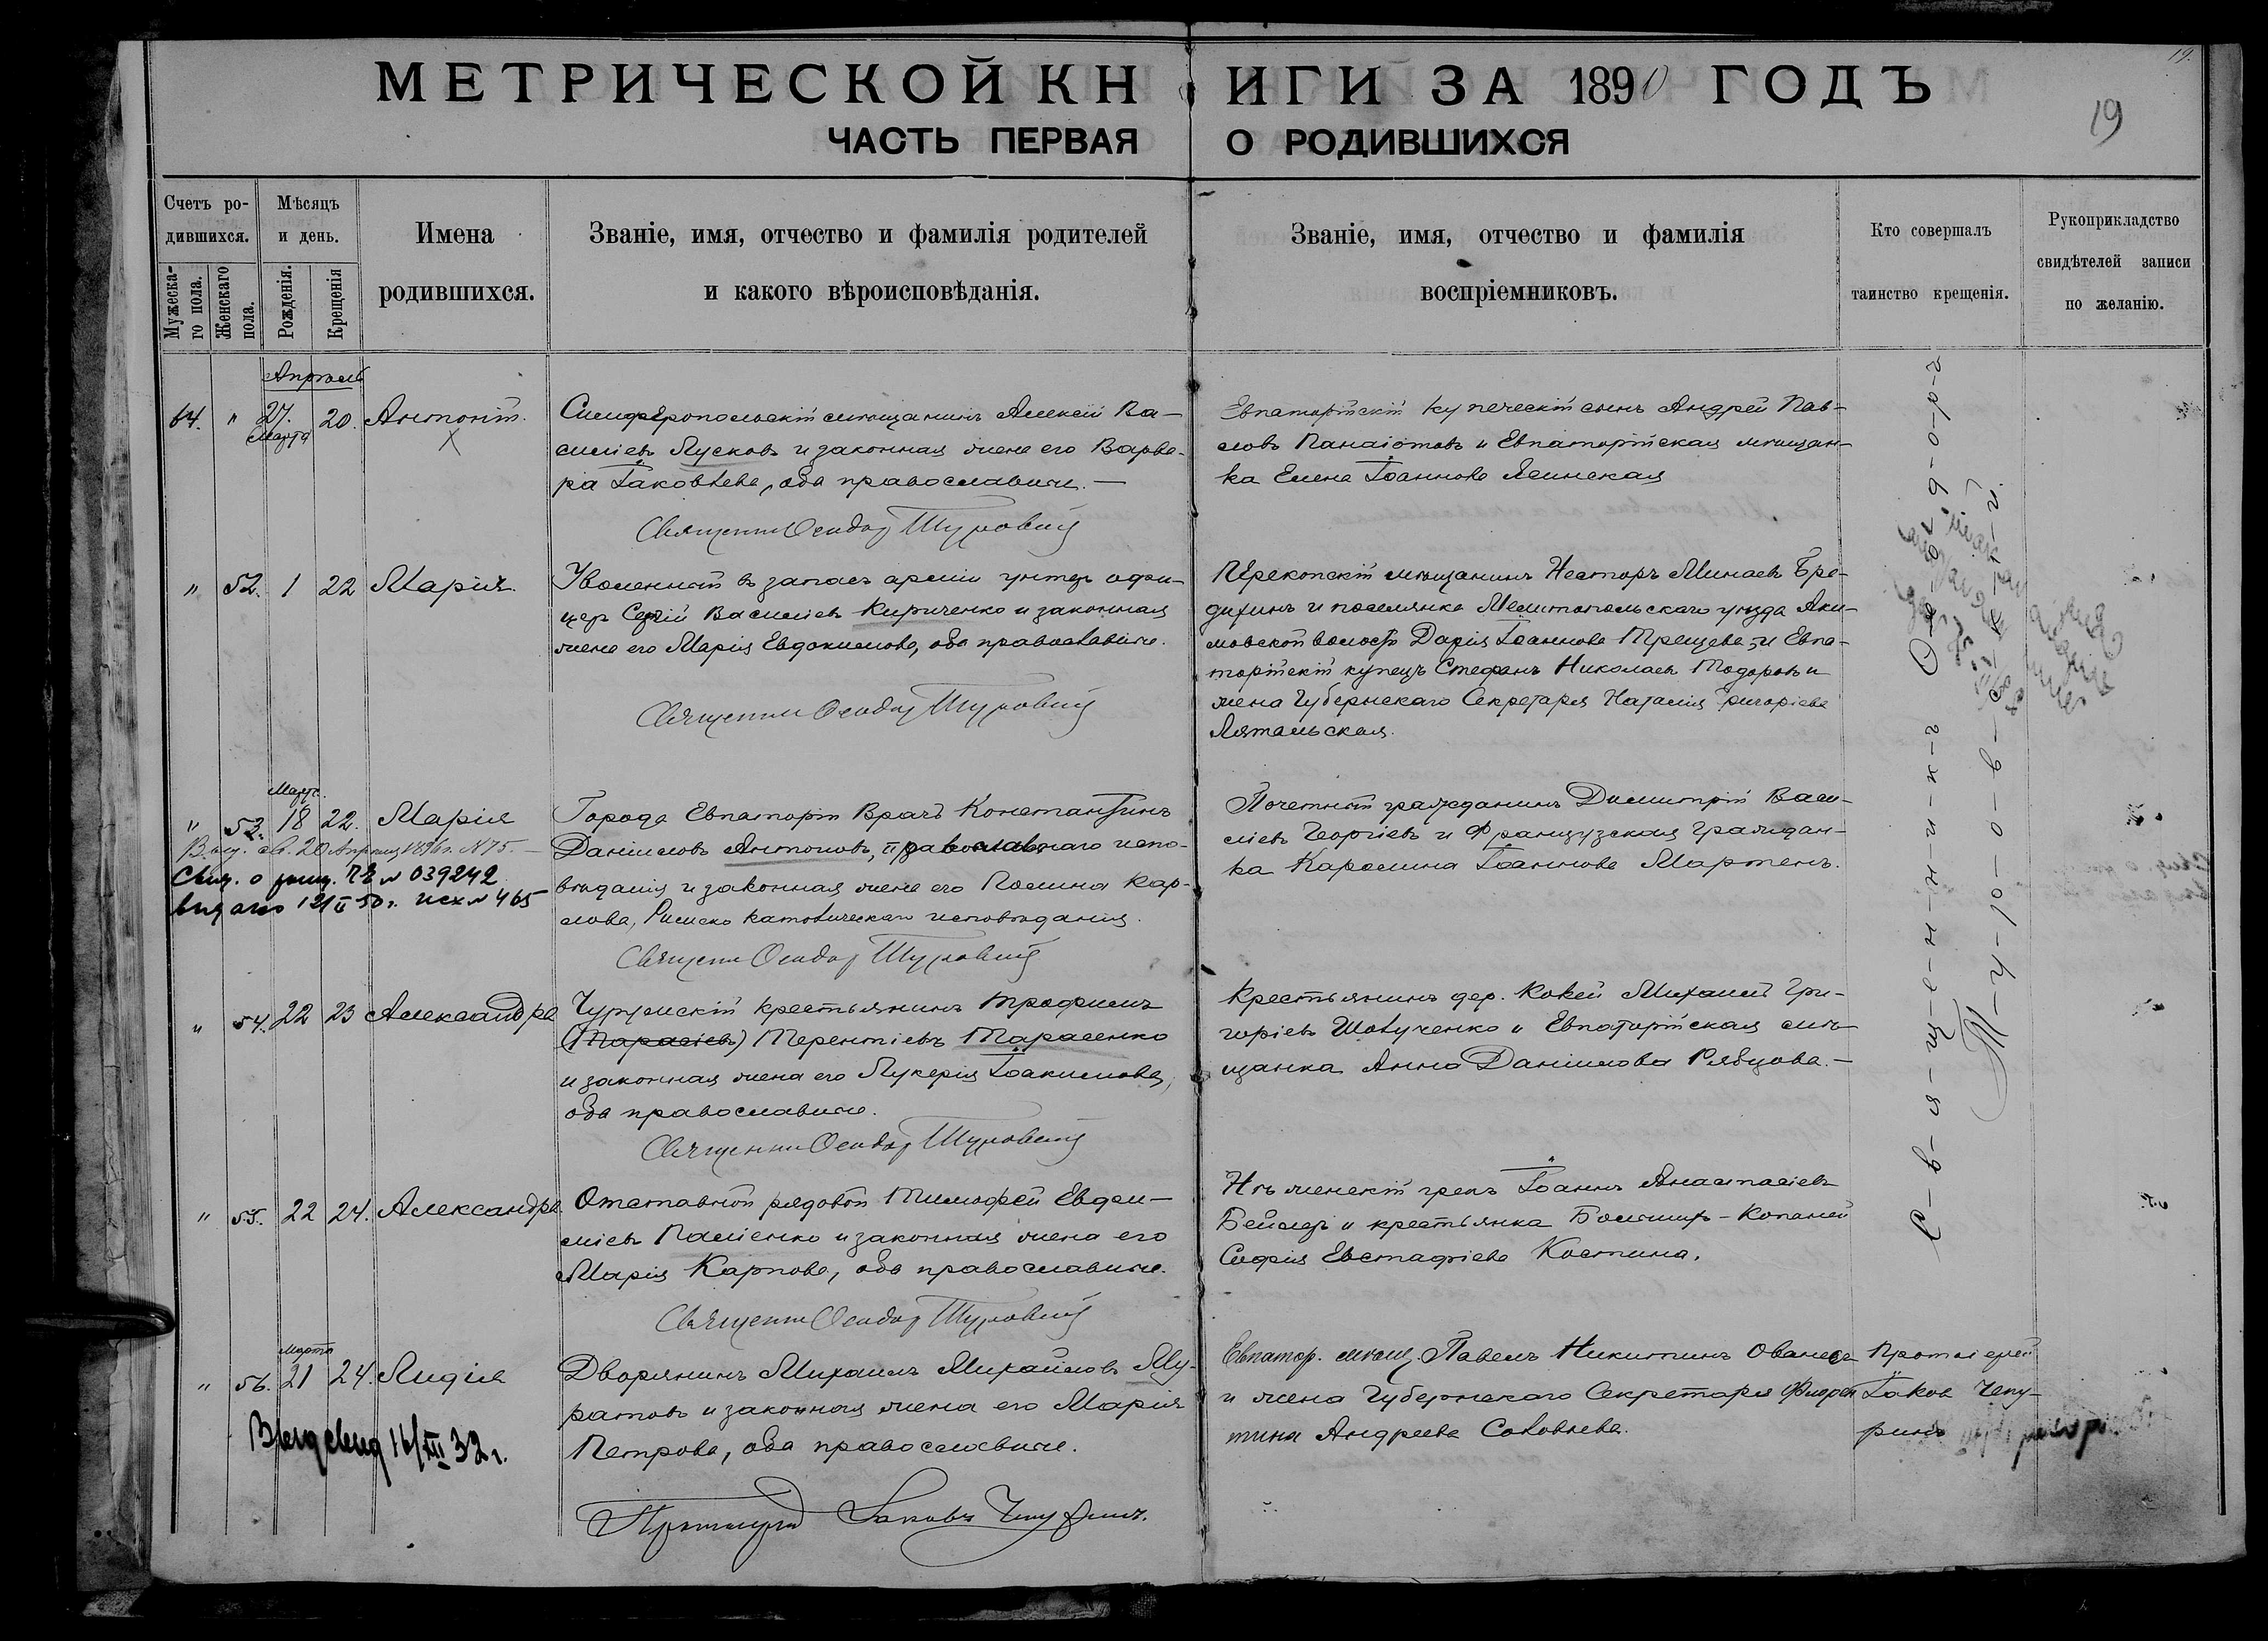 МЕТРИЧЕСКОЙ КНИГИ ЗА 1890 ГОДЪ
ЧАСТЬ ПЕРВАЯ О РОДИВШИХСЯ
19.
19
Счетъ ро-
дившихся.
Мужеска-
го пола.
Женскаго
пола.
Мѣсяцъ
и день.
Рожденія.
Крещенія
Имена
родившихся.
Званіе, имя, отчество и фамилія родителей
и какого вѣроисповѣданія.
Званіе, имя, отчество и фамилія
воспріемниковъ.
Кто совершалъ
таинство крещенія.
Рукоприкладство
свидѣтелей записи
по желанію.
Апрѣль
64. " 27. Марта 20. Антоній.
Симферопольскій мѣщанинъ Алексѣй Ва-
силіевъ Лусковъ и законная жена его Варва-
ра Іаковлева, оба православные.
Священникъ Ѳеодоръ Туровскій
Евпаторійскій купеческій сынъ Андрей Пав-
ловъ Панаіотовъ и Евпаторійская мѣщан-
ка Елена Іоаннова Ясинская
" 52. 1 22 Марія.
Уволенный въ запасъ арміи унтеръ офи-
церъ Сергій Василіевъ Кириченко и законная
жена его Марія Евдокимова, оба православные.
Священникъ Ѳеодоръ Туровскій
Перекопскій мѣщанинъ Несторъ Минаевъ Бре-
дихинъ и поселянка Мелитопольскаго уѣзда Аки-
мовской волости Дарія Іоаннова Трещева, и Евпа-
торійскій купецъ Стефанъ Николаевъ Тодоровъ и
жена Губернскаго Секретаря Наталія Григоріева
Лятальская.
Марта.
" 53. 18 22. Марія
Выд. св. 20 Апрѣля 1896 г. №75.
Свид. о рожд. № 039242
выдано 12/II 50 г. исх № 465
Города Евпаторіи Врачъ Константинъ
Даніиловъ Антоновъ, православнаго испо-
вѣданія и законная жена его Полина Кар-
лова, Римско католическаго исповѣданія.
Священникъ Ѳеодоръ Туровскій
Почетный гражданинъ Димитрій Васи-
ліевъ Георгіевъ и Французская граждан-
ка Каролина Іоаннова Мартенъ.
" 54. 22 23 Александра
Чурумскій крестьянинъ Трофимъ
(Тарасіевъ) Терентіевъ Тарасенко
и законная жена его Лукерія Іоакимова,
оба православные.
Священникъ Ѳеодоръ Туровскій
Крестьянинъ дер. Кокей Михаилъ Гри-
горіевъ Шовученко и Евпаторійская мѣ-
щанка Анна Даніилова Рябцова.
" 55. 22 24. Александра.
Отставной рядовой Тимофей Евфи-
міевъ Паліенко и законная жена его
Марія Карпова, оба православные.
Священникъ Ѳеодоръ Туровскій
Нѣженскій грекъ Іоаннъ Анастасіевъ
Бейлеръ и крестьянка Большихъ-Копаней
Софія Евстафіева Костина.
Марта
" 56. 21 24. Лидія
16/III 32 г.
Дворянинъ Михаилъ Михайловъ Му-
ратовъ и законная жена его Марія
Петрова, оба православные.
Протоіерей Іаковъ Чепуринъ.
Евпатор. мѣщ. Павелъ Никитинъ Ованесъ
и жена Губернскаго Секретаря Флорен
тина Андреева Соловьева.
Протоіерей
Іаковъ Чепу-
ринъ
С-в-я-щ-е-н-н-и-к-ъ Ѳ-е-о-д-о-р-ъ
Т-у-р-о-в-с-к-і-й.